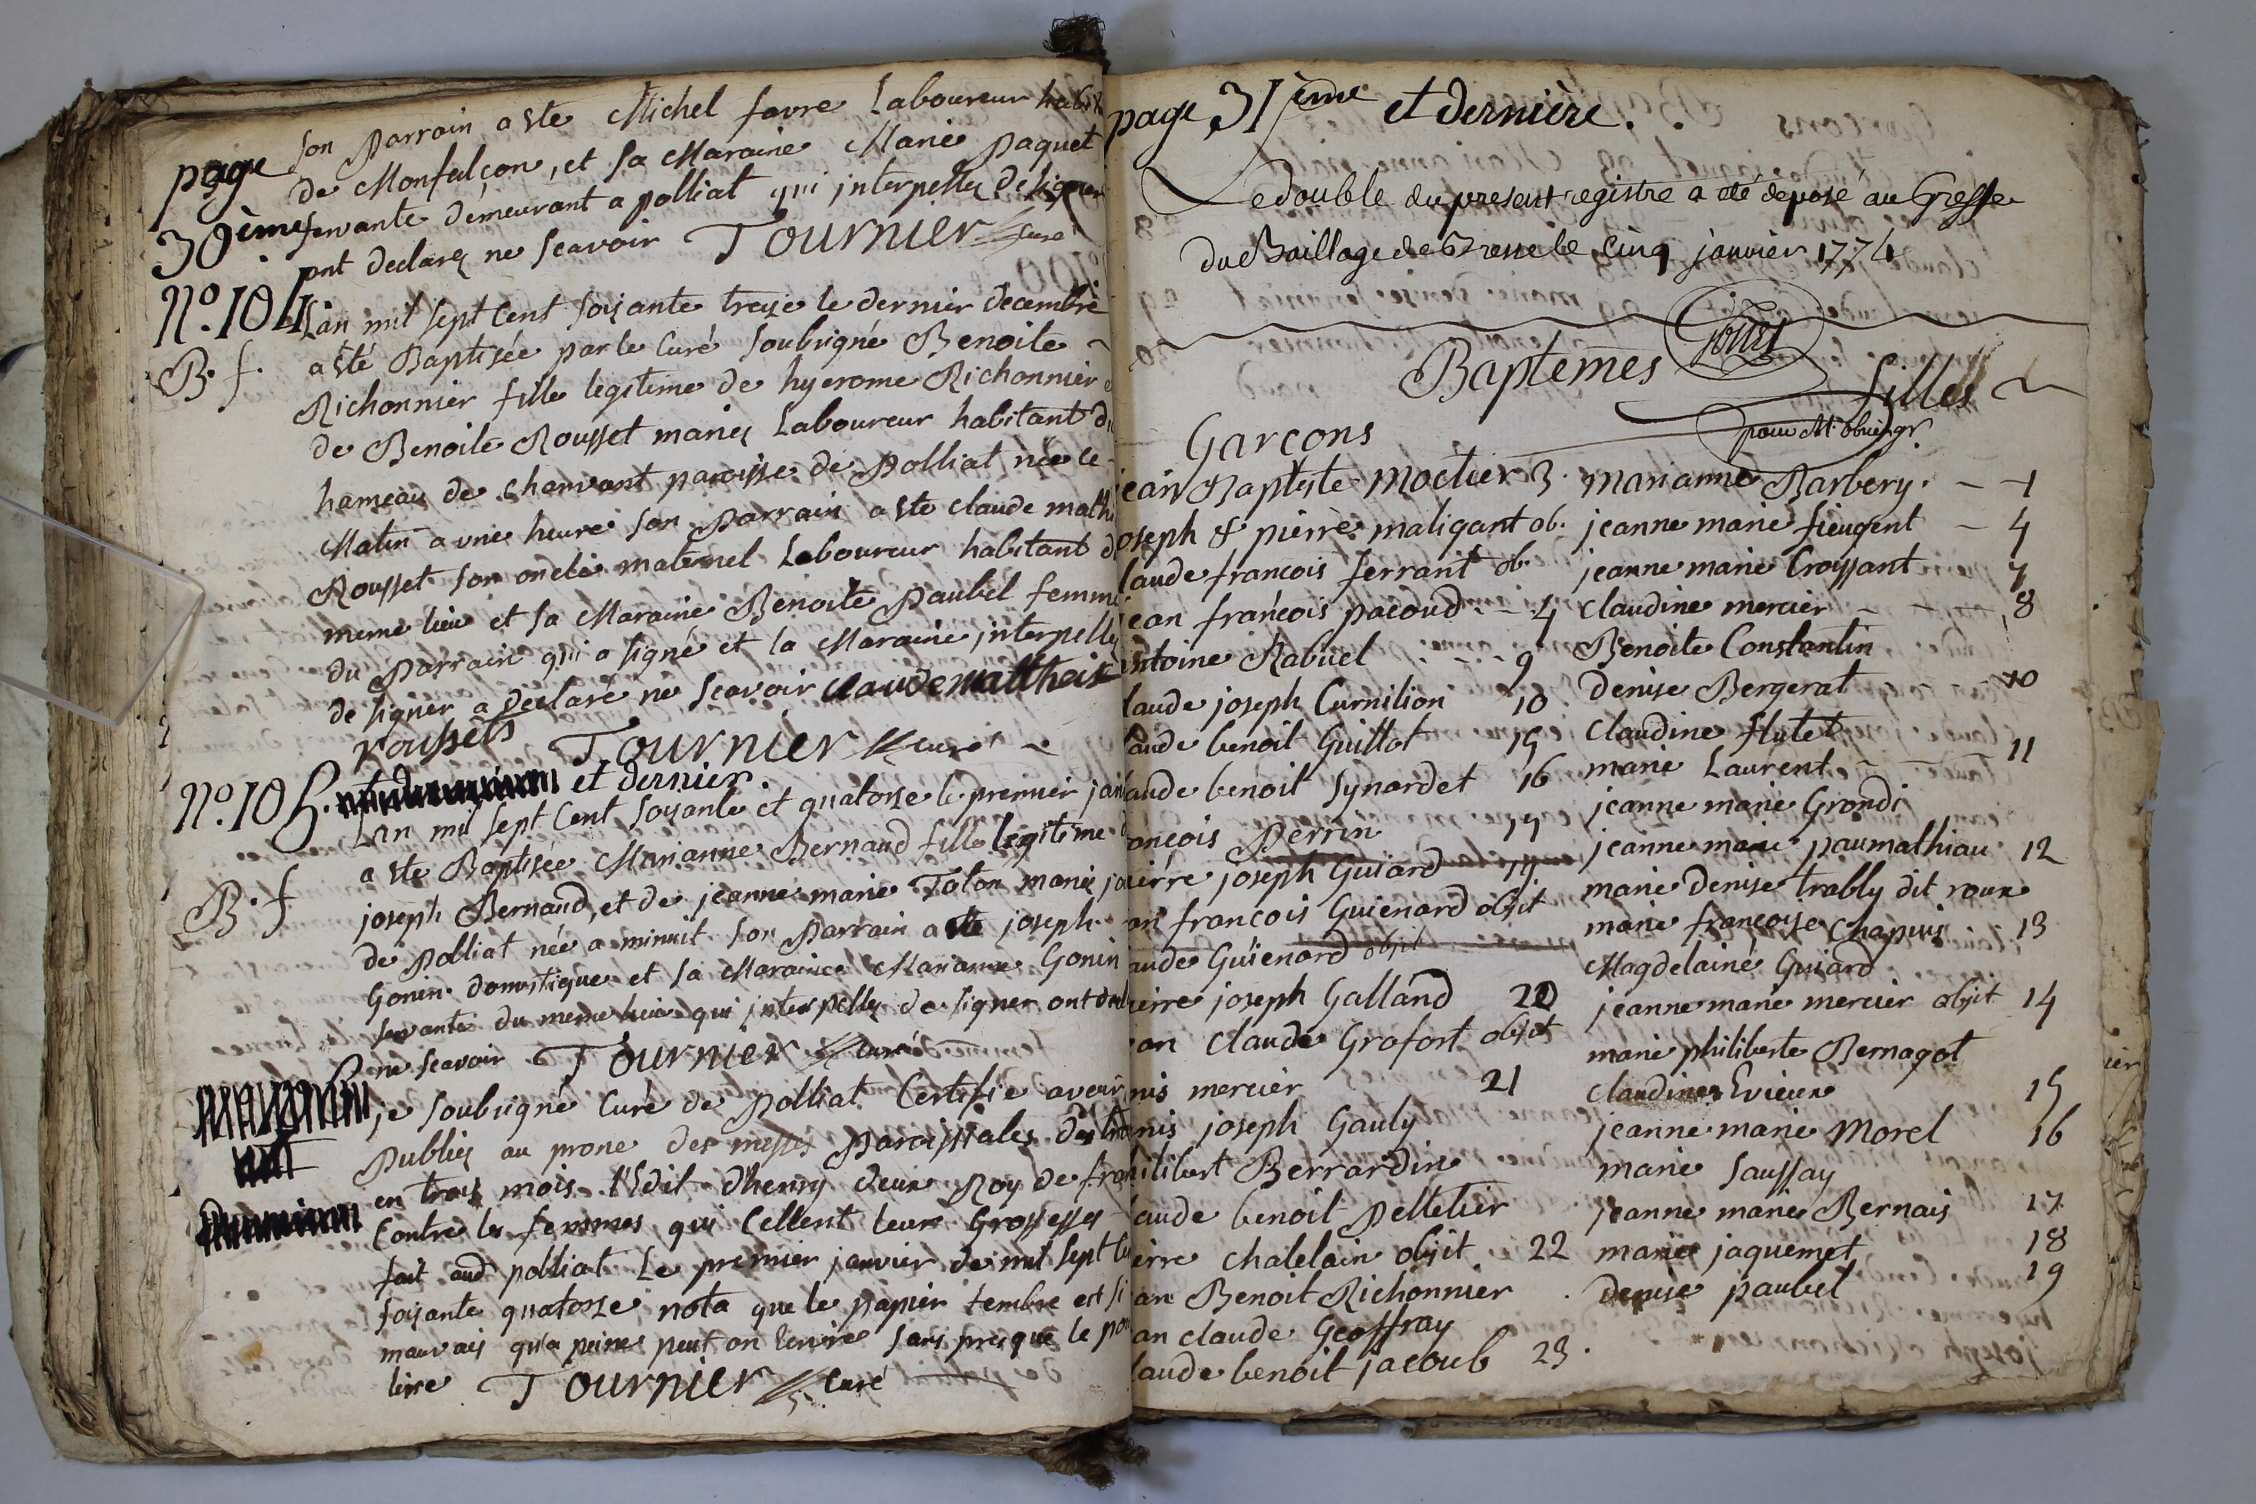 son Parrain a ste Michel favre Laboureur
page
de Monfalcon, et sa Maraine Marie Paquet
30ème
servante demeurant a polliat qui interpellez de signer
ont declarez ne scavoir Tournier curé
N.o 104
L'an mil sept cent soixante treize le dernier decembre
B. f.
a sté Baptisée par le Curé soubsigné Benoite
Richonnier fille legitime de hyerome Richonnier
de Benoite Rousset mariez Laboureur habitant
hameau de charvant paroisse de Polliat née ce
Matin a une heure son Parrain a ste claude
Rousset son oncle maternel Laboureur habitant
meme lieu et sa Maraine Benoite Paubel femme
du Parrain qui a signé et la Maraine interpellez
de signer a declaré ne scavoir claude matheis
roussets Tournier curé
N.o 105. et dernier.
L'an mil sept cent soixante et quatorse le premier
B. f
a ste Baptisée Marianne Bernaud fille legitime
joseph Bernaud, et de jeanne marie Taton mariez
de Polliat née a minuit son Parrain a ste joseph
Gonin domestique et sa Maraine Marianne Gonin
servante du meme lieu qui interpellez de signer ont
ne scavoir Tournier curé
je soubsigné Curé de Polliat Certifie avoir
Publiez au prone des messes Paroissiales de
en trois mois l'Edit d'henry deux Roy de
Contre les femmes qui Cellent leurs Grossesses
fait aud polliat Le premier janvier de mil sept
soixante quatorse nota que le papier tembre est si
mauvais qu'a peine peut on l'ecrire sans presque le
lire Tournier curé
page 31ème et dernière.
Le double du present registre a été déposé au Greffe
du Baillage de Bresse le cinq janvier 1774
Baptemes
Garcons filles
jean Baptiste moctier 3. marianne Barbery. 1
joseph & pierre maligant ob. jeanne marie fieugent 4
laude francois ferrant ob. jeanne marie Croissant 7
jean françois pacoud 4 claudine mercier 8
ntoine Rabuel 9 Benoite Constantin
laude joseph Curnilion 10 denise Bergerat 10
laude benoit Guillot 15 claudine flutet
aude benoit Synardet 16 marie Laurent 11
jeanne marie Grondi
ancois Perrin 17 jeanne marie paumathiau 12
ierre joseph Guiard 19 marie Denise trably dit roux
an francois Guienard objit marie francoise Chapuis 13
aude Guienard objit Magdelaine Guiard
ierre joseph Galland 20 jeanne marie mercier objit 14
an claude Grofort objit marie philiberte Bernagot
nis mercier 21 claudine Evieux 15
nis joseph Gauly jeanne marie Morel 16
ilibert Berrardin marie saussay
aude benoit Pelletier jeanne marie Bernais 17
ierre chatelain objit 22 marie jaquemet 18
an Benoit Richonnier denise paubel 19
an claude Geoffray
laude benoit jacoub 23.